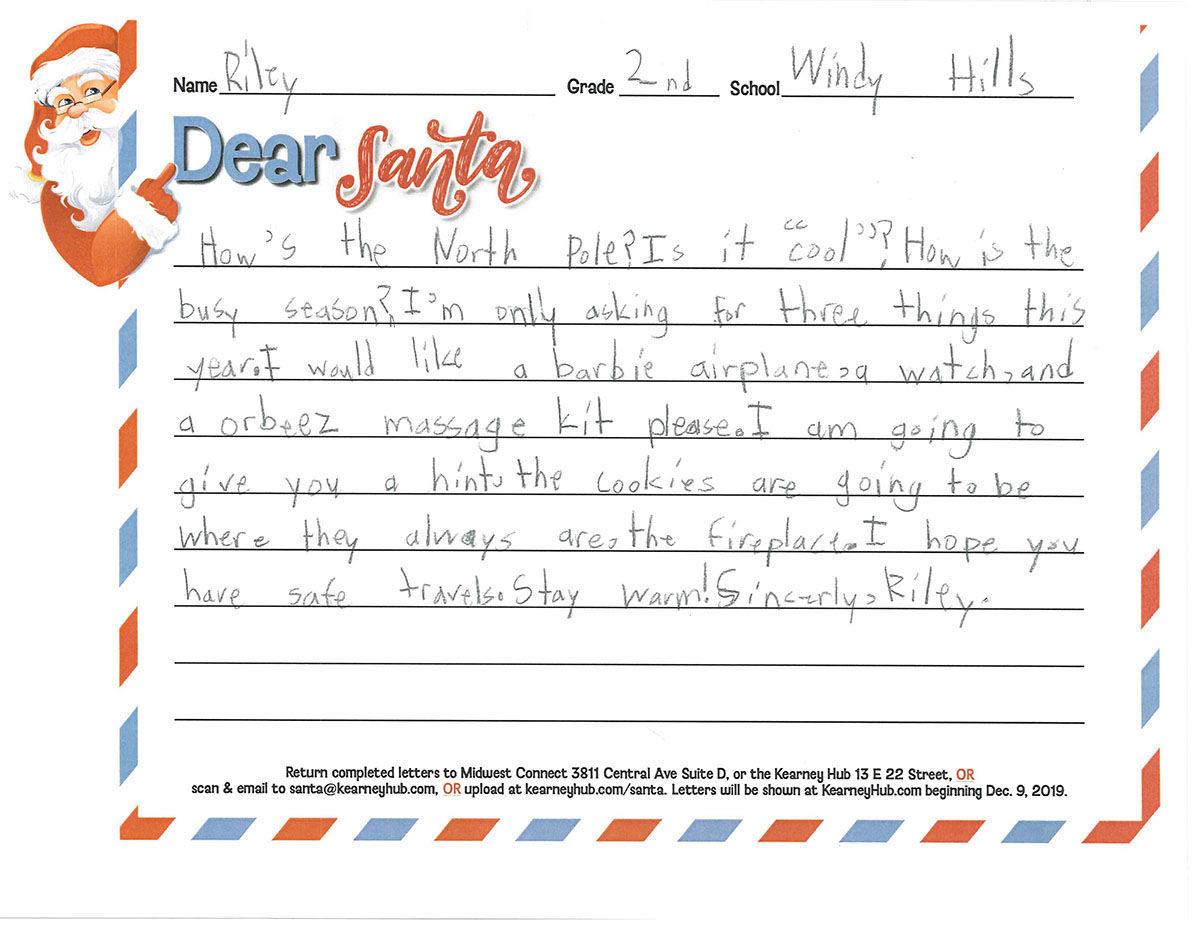 Name Riley Grade 2nd School Windy Hills
Dear Santa,
How's the North Pole? Is it "cool"? How is the
busy season? I'm only asking for three things this
year. I would like a barbie airplane, a watch, and
a orbeez massage kit please. I am going to
give you a hint, the cookies are going to be
where they always are, the fireplace. I hope you
have safe travels. Stay warm! Sincerly, Riley.
Return completed letters to Midwest Connect 3811 Central Ave Suite D, or the Kearney Hub 13 E 22 Street, OR
scan & email to santa@kearneyhub.com, OR upload at kearneyhub.com/santa. Letters will be shown at KearneyHub.com beginning Dec. 9, 2019.